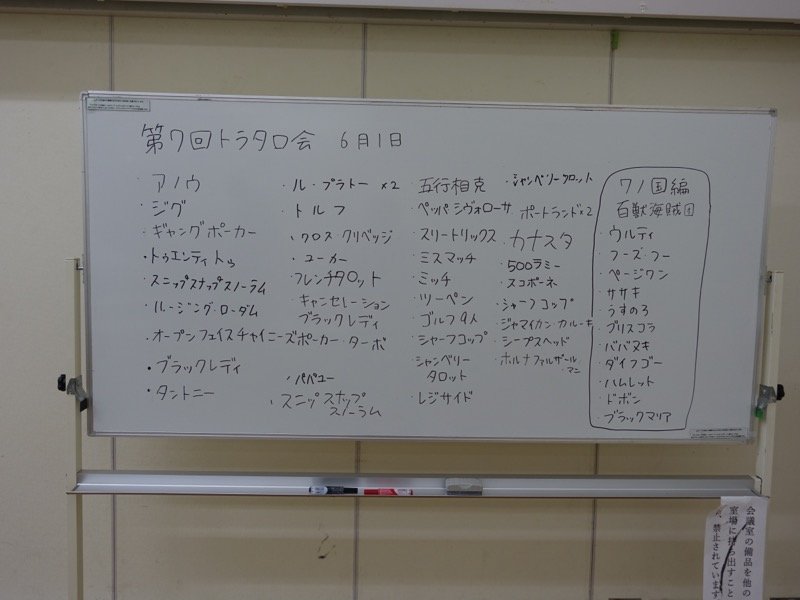 第7回トラタロ会 6月1日
・アノウ
・ジグ
・ギャングポーカー
・トゥエンティトゥ
・スニップスナップスノーラム
・ルージング・ローダム
・オープンフェイスチャイニーズポーカー・ターボ
・ブラックレディ
・タントニー
・ル・プラトー×2
・トルフ
・クロス クリベッジ
・ユーカー
・フレンチタロット
・キャンセレーション
ブラックレディ
・パペユー
・スニップスナップ
スノーラム
・五行相克
・ペッパーシヴォローサ
・スリートリックス
・ミスマッチ
・ミッチ
・ツーペン
・ゴルフ4人
・シャーフコップ
・シャンベリー
タロット
・レジサイド
・シャンベリータロット
・ポートランド×2
・カナスタ
・500ラミー
・スコポーネ
・シャーフコップ
・ジャマイカン・カルーキ
・シープスヘッド
・ホルナファルザール
・マニ
ワノ国編
百獣海賊団
・ウルティ
・フーズ・フー
・ページワン
・ササキ
・うすのろ
・ブリスコラ
・ババヌキ
・ダイフゴー
・ハムレット
・ドボン
・ブラックマリア
会議室の備品を他の
室場に持ち出すこと
禁止されています